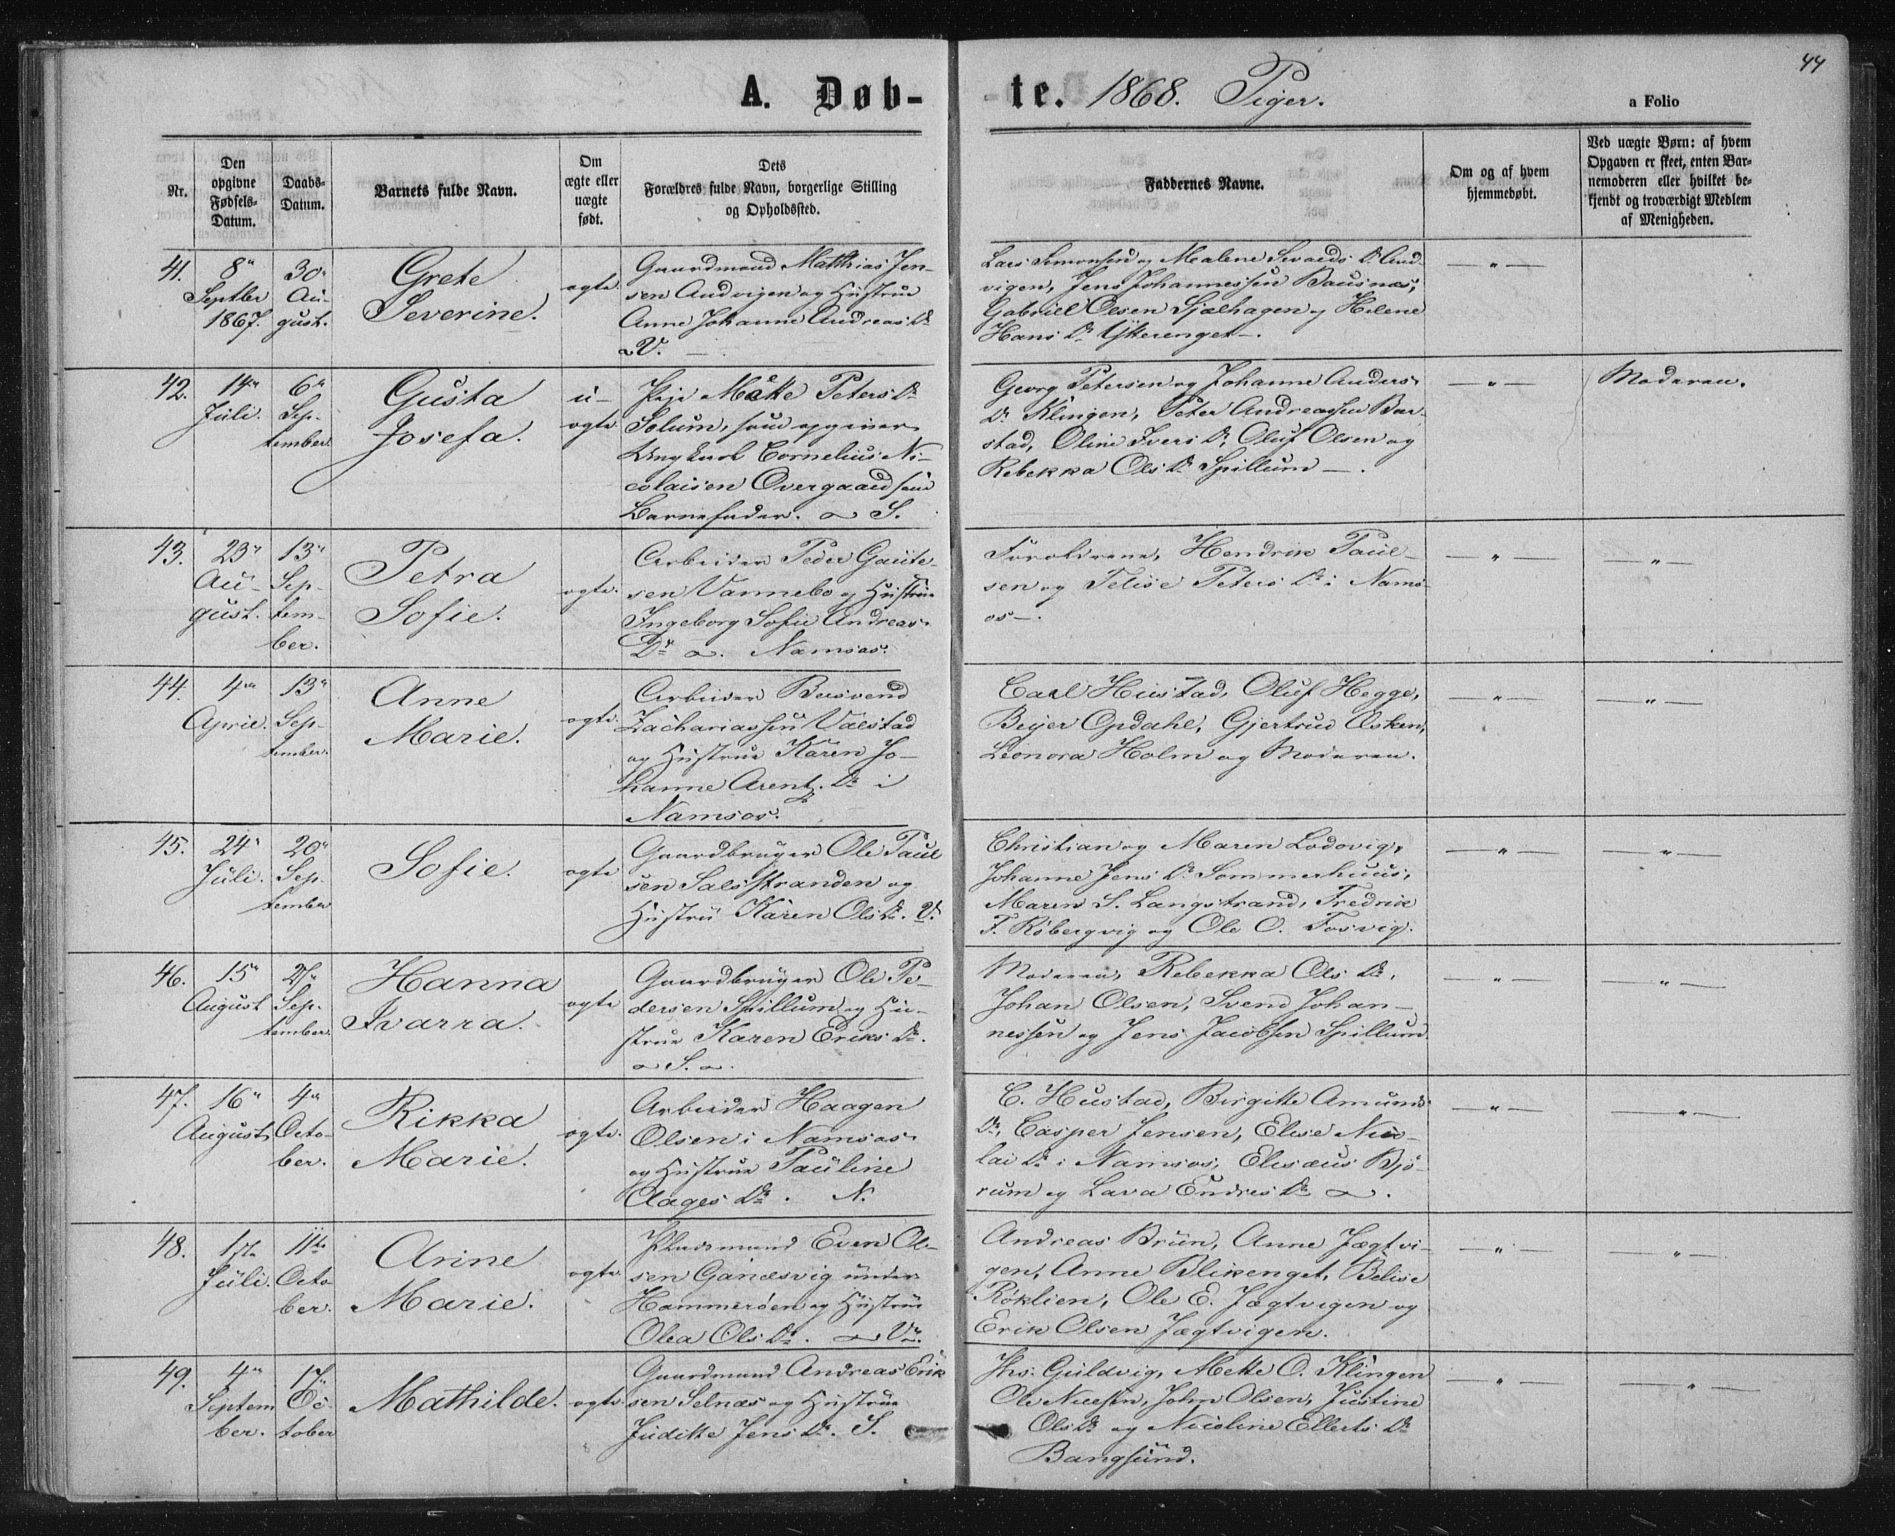 44
A. Døb- te. 1868. Piger.
a Folio
Nr.
Den opgivne Fødsels-Datum.
Daabs-Datum.
Barnets fulde Navn.
Om ægte eller uægte født.
Dets Forældres fulde Navn, borgerlige Stilling og Opholdssted.
Faddernes Navne.
Om og af hvem hjemmedøbt.
Ved uægte Børn: af hvem Opgaven er skeet, enten Barnemoderen eller hvilket bekjendt og troværdigt Medlem af Menigheden.
41. 8de Septbr 1867. 30te August.
Grete
Severine.
ægte
Gaardmand Matthias Jen-
sen Andvigen og Hustrue
Anne Johanne Andreas Dr
V. —
Lars Simonsen og Malene Sivards Dr And-
vigen, Jens Johannessen Bausnes,
Gabriel Olsen Sjælhagen og Helene
Hans Dr Ytterenget —.
— " —
42. 14de Juli. 6te September.
Gusta
Josefa.
u-
ægte
Pige Mette Peters Dr
Solum, som opgiver
Ungkarl Cornelius Ni-
colaisen Overgaard som
Barnefader. S.
Georg Petersen og Johanne Anders
Dr Klingen, Peter Andreassen Bar-
stad, Oline Ivers Dr, Oluf Olsen og
Rebekka Ols Dr Spillum —.
— " —
Moderen.
43. 23de August. 13de September.
Petra
Sofie.
ægte.
Arbeider Peder Gaute-
sen Vannebo og Hustrue
Ingeborg Sofie Andreas
Dr Namsos.
Forældrene, Hendrik Paul-
sen og Felise Peters Dr i Nams-
os —.
— " —
— " —
44. 4de April. 13de September.
Anne
Marie.
ægte.
Arbeider
Zachariassen Valstad
og Hustrue Karen Jo-
hanne Arent. Dr i
Namsos.
Carl Hustad, Oluf Hegge,
Beijer Opdahl, Gjertrud Asken,
Leonora Holm og Moderen.
— " —
— " —
45. 24de Juli. 20de September
Sofie.
ægte
Gaardbruger Ole Paul
sen Salsstranden og
Hustru Karen Ols Dr. V.
Christian og Maren Lodovig,
Johanne Jens Dr Sommerhuus,
Maren S. Langstrand, Fredrik
F. Röbergvig og Ole O. Fosvig.
— " —
— " —
46. 15de August 27de September.
Hanna
Ivarra.
ægte
Gaardbruger Ole Pe-
dersen Spillum og Hu-
strue Karen Eriks Dr.
S.
Moderen, Rebekka Ols Dr,
Johan Olsen, Svend Johan-
nessen og Jens Jacobsen Spillum.
— " —
— " —
47. 16de August 4de October.
Rikka
Marie.
ægte.
Arbeider Haagen
Olsen i Namsos
og Hustrue Pauline
Aages Dr. N.
C. Hustad, Birgitte Amunds
Dr, Casper Jensen, Elise Nico-
lai Dr i Namsos, Elisæus Bjö-
rum og Lava Endres Dr.
— " —
— " —
48. 17de Juli. 11te October.
Arine
Marie.
ægte
Pladsmand Even Ol-
sen Ganæsvig under
Hammerøen og Hustrue
Olea Ols Dr. V.
Andreas Brün, Anne Jægtvi-
gen, Anne Blikenget, Belise
Röklien, Ole E. Jægtvigen og
Erik Olsen Jægtvigen.
— " —
— " —
49. 4de September. 17de October
Mathilde.
ægte
Gaardmand Andreas Erik
sen Selnæs og Hustrue
Judithe Jens Dr. S.
Jhs. Guldvig, Mette O. Klingen
Ole Nielsen, John Olsen, Justine
Ols Dr og Nicoline Ellerts Dr
Bangsund.
— " —
— " —